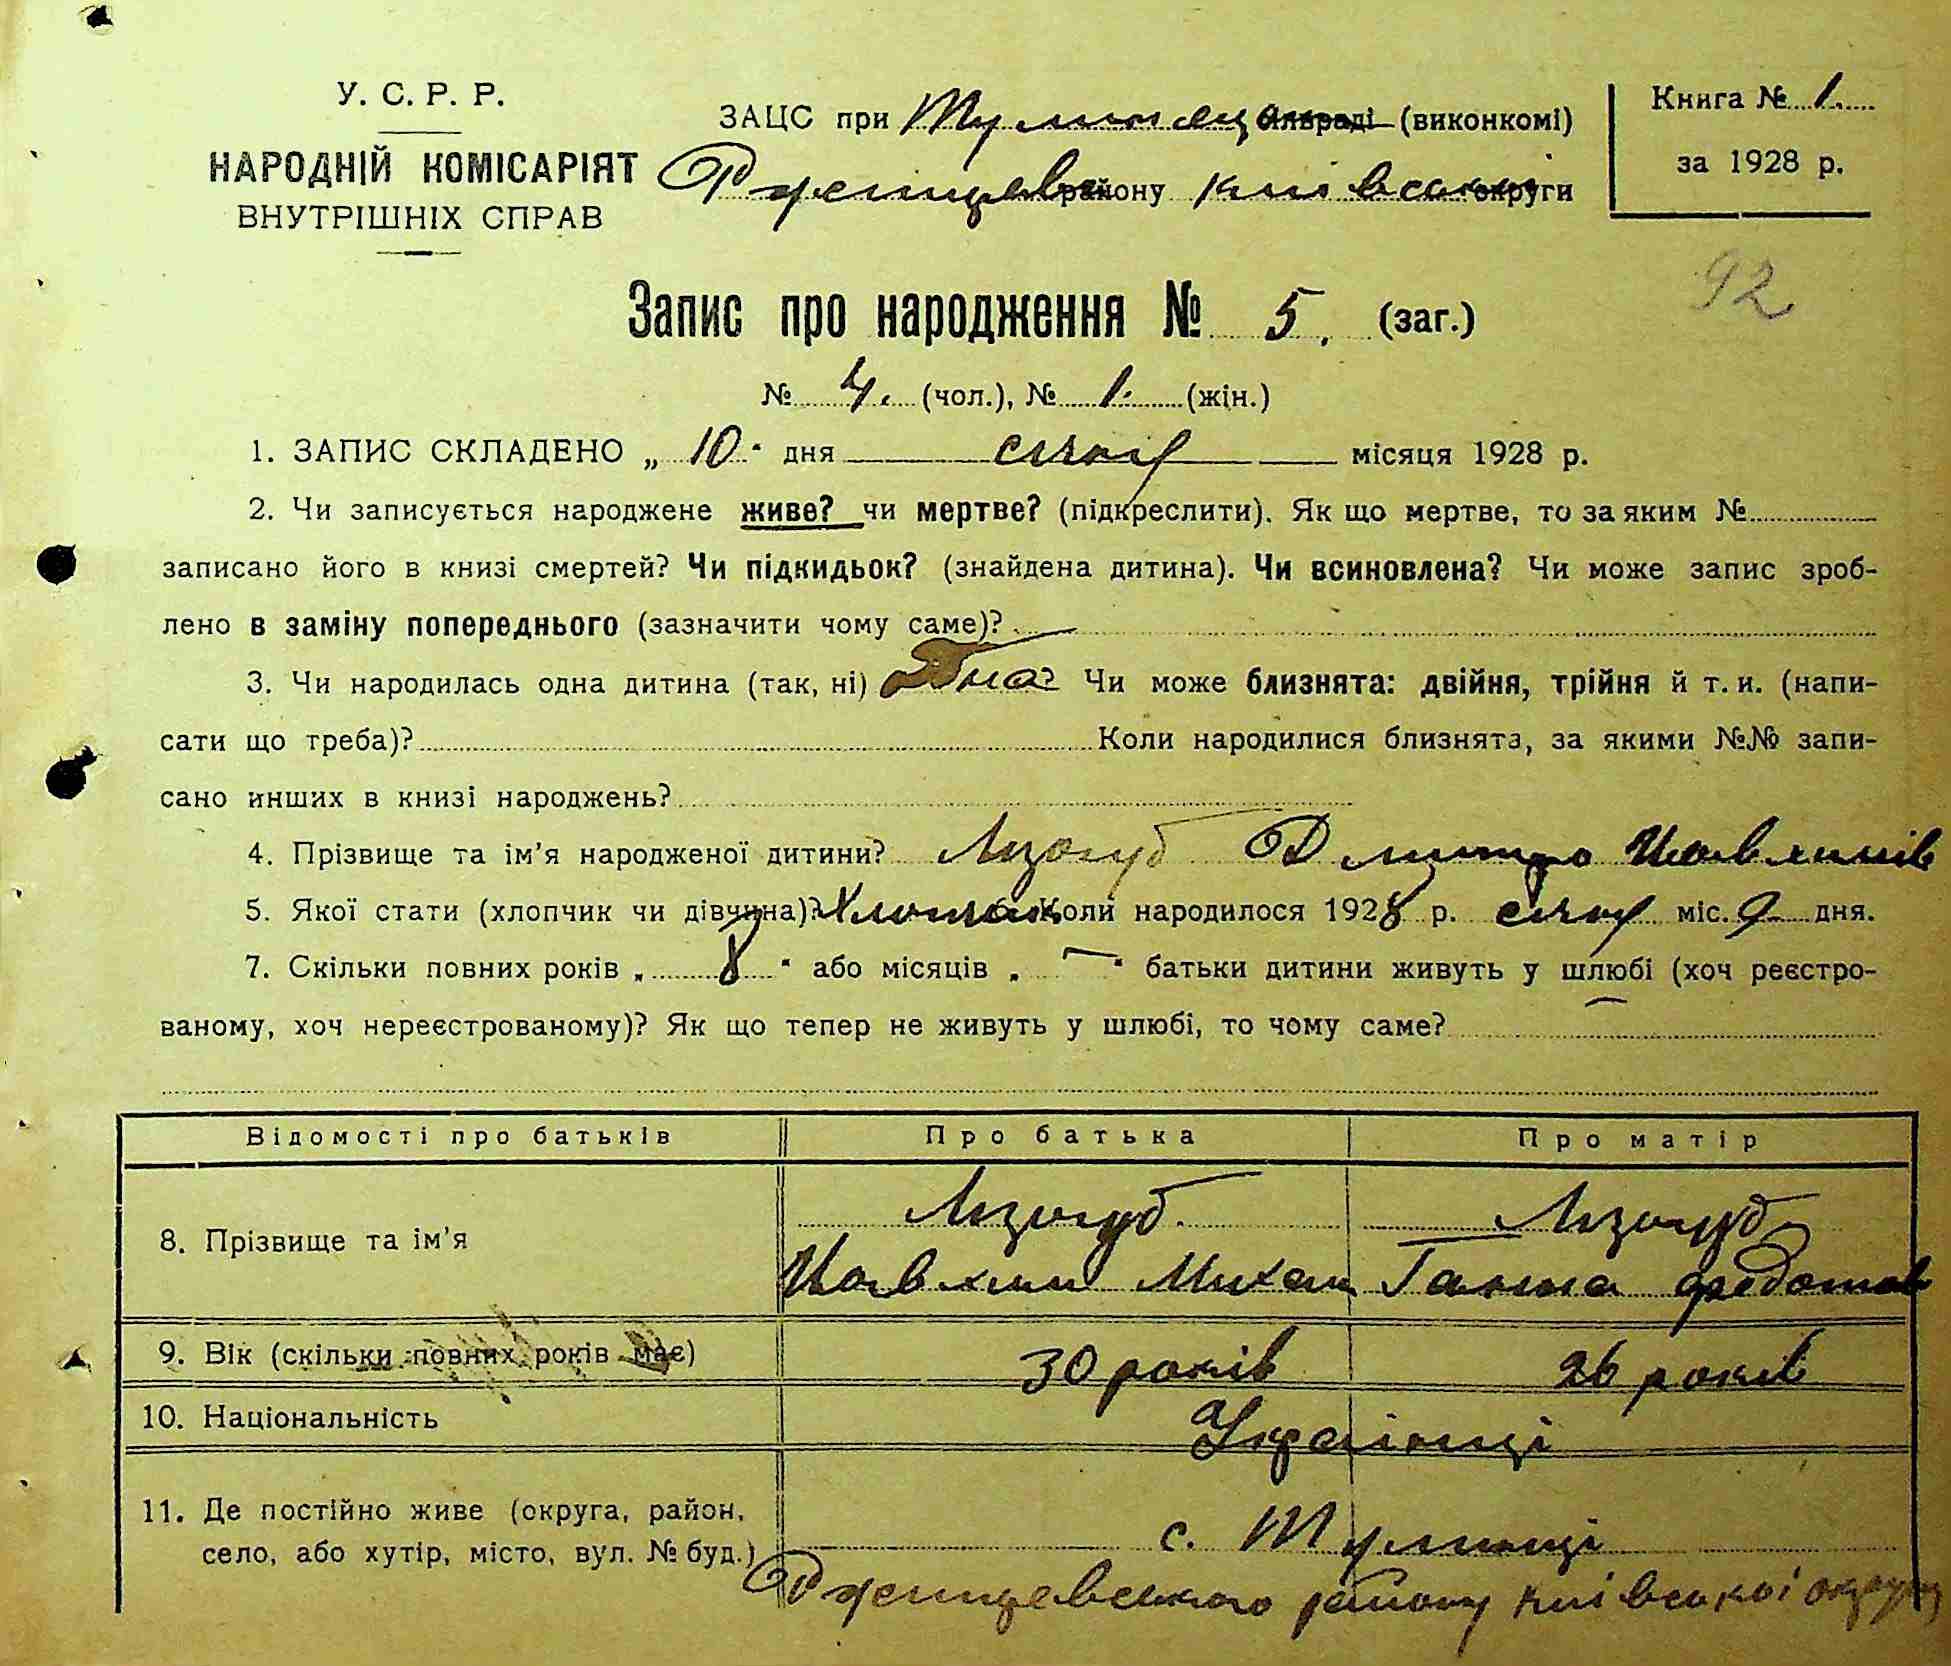 У. С. Р. Р.
НАРОДНІЙ КОМІСАРІЯТ
ВНУТРІШНІХ СПРАВ
ЗАЦС при сільраді (виконкомі)
району округи
Книга № 1.
за 1928 р.
92
Запис про народження № 5. (заг.)
№ 4. (чол.), № 1. (жін.)
1. ЗАПИС СКЛАДЕНО „ 10 " дня січня місяця 1928 р.
2. Чи записується народжене живе? чи мертве? (підкреслити). Як що мертве, то за яким №
записано його в книзі смертей? Чи підкидьок? (знайдена дитина). Чи всиновлена? Чи може запис зроб-
лено в заміну попереднього (зазначити чому саме)?
3. Чи народилась одна дитина (так, ні) Чи може близнята: двійня, трійня й т. и. (напи-
сати що треба)? Коли народилися близнята, за якими №№ запи-
сано инших в книзі народжень?
4. Прізвище та ім'я народженої дитини? Лизогуб Дмитро
5. Якої стати (хлопчик чи дівчина)? Хлопчик Коли народилося 1928 р. січня міс. 9 дня.
7. Скільки повних років „ 8 " або місяців „ – " батьки дитини живуть у шлюбі (хоч реєстро-
ваному, хоч нереєстрованому)? Як що тепер не живуть у шлюбі, то чому саме?
Відомості про батьків Про батька Про матір
8. Прізвище та ім'я Лизогуб Лизогуб
Ганна Федотов
9. Вік (скільки повних років має) 30 років 26 років
10. Національність Українці
11. Де постійно живе (округа, район, с. Тулинці
село, або хутір, місто, вул. № буд.)
Ржищевського району Київської округи